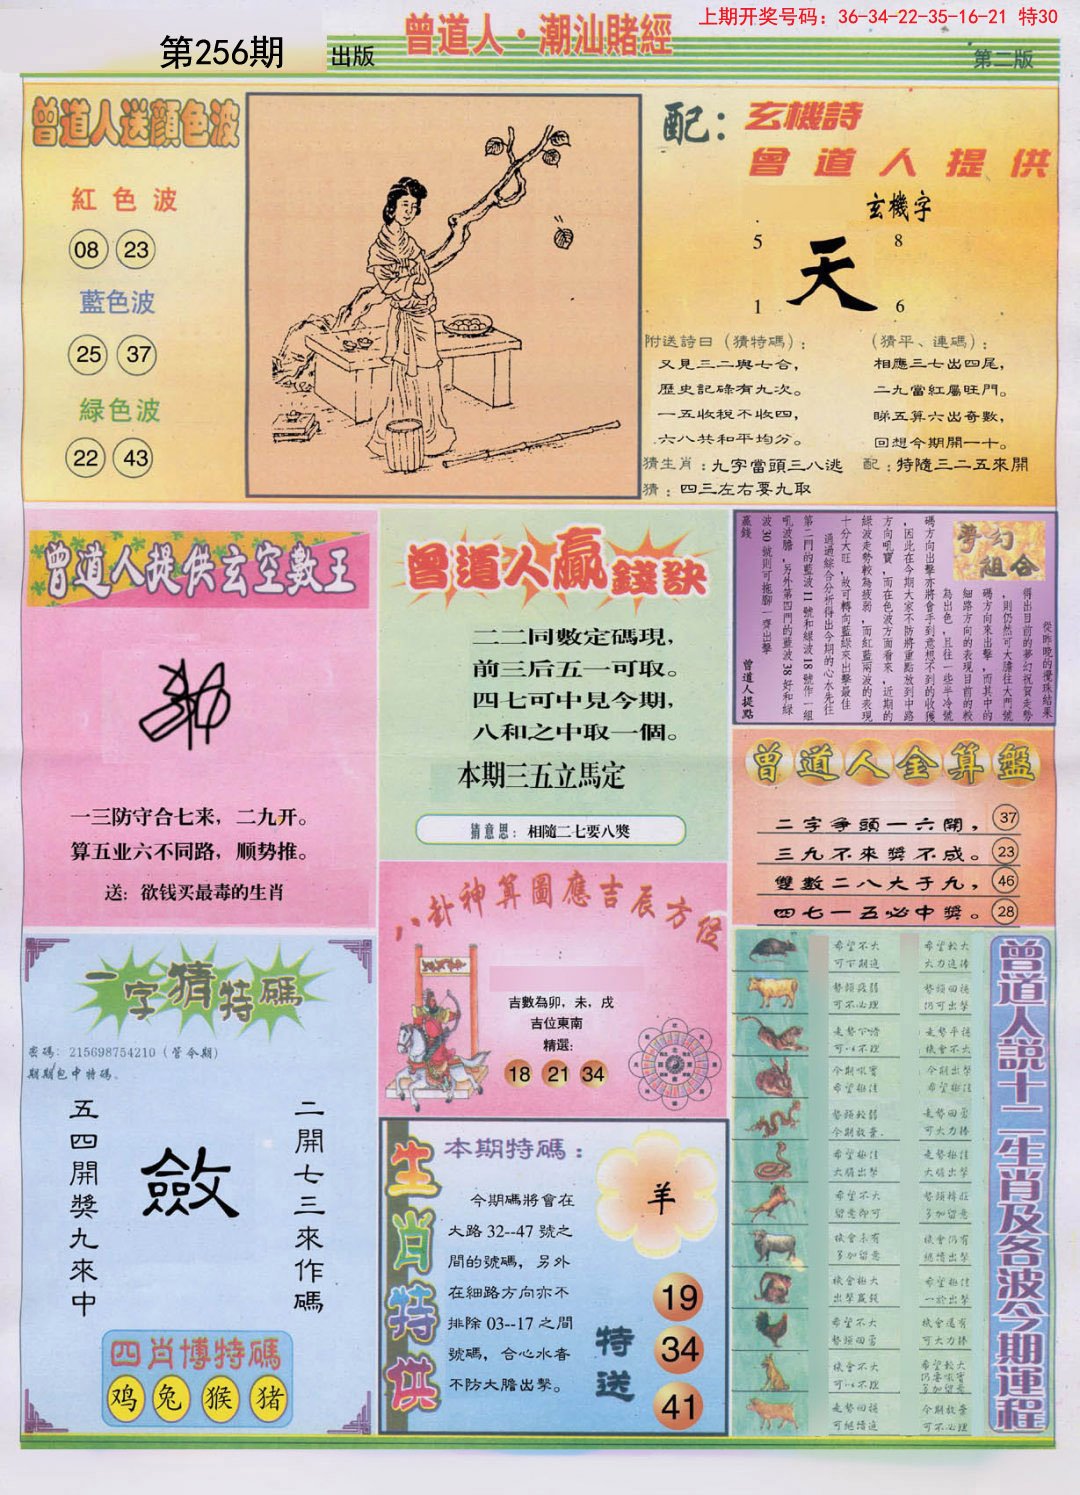 上期开奖号码：36-34-22-35-16-21 特30
第256期
出版
曾道人·潮汕賭經
第二版
曾道人送顔色波
紅色波
08 23
藍色波
25 37
緑色波
22 43
配：玄機詩
曾道人提供
玄機字
5 8
天
1 6
附送詩曰（猜特碼）；
又見三二與七合，
歷史記碌有九次。
一五收稅不收四，
六八共和平均分。
猜生肖：九字當頭三八逃
猜：四三左右要九取
（猜平、連碼）；
相應三七出四尾，
二九當紅屬旺門。
睇五算六出奇數，
回想今期開一十。
配：特隨三二五來開
曾道人提供玄空數王
一三防守合七来，二九开。
算五业六不同路，顺势推。
送：欲钱买最毒的生肖
曾道人贏錢訣
二二同數定碼現，
前三后五一可取。
四七可中見今期，
八和之中取一個。
本期三五立馬定
猜意思：相隨二七要八獎
夢幻組合
從昨晚的攪珠結果
得出目前的夢幻祝賀走勢
，則仍然可大膽往大門號
碼方向來出擊，而其中的
細路方向的表現目前的較
為出色，且往一些半冷號
碼方向出擊亦將會手到意想不到的收獲
，因此在今期大家不防將重點放到中路
方向吼寶，而在色波方面看來，近期的
綠波走勢較為疲弱，而紅藍兩波的表現
十分大旺，故可轉向藍綠來出擊最佳
通過綜合分析得出今期的心水先往
第二門的藍波11號和綠波18號作一組
吼波膽，另外第四門的藍波38好和綠
波30號則可拖腳一齊出擊
贏錢
曾道人提點
曾道人金算盤
二字爭頭一六開，37
三九不來獎不成。23
雙數二八大于九，46
四七一五必中獎。28
八卦神算圖應吉辰方位
吉數為卯，未，戌
吉位東南
精選：
18 21 34
一字猜特碼
密碼：215698754210（管今期）
期期包中特碼、
五四開獎九來中
斂
二開七三來作碼
四肖博特碼
鸡 兔 猴 猪
生肖特供
本期特碼：
今期碼將會在
大路 32--47 號之
間的號碼，另外
在細路方向亦不
排除 03--17 之間
號碼，合心水者
不防大膽出擊。
羊
特送
19
34
41
曾道人說十二生肖及各波今期運程
希望不大
可下期追
希望較大
大力追捧
勢頻疲弱
可不必理
勢頻回穩
仍可出擊
走勢平穩
機會不大
今期出擊
希望極佳
勢頻較弱
今期放棄
走勢回勇
可大力捧
走勢極佳
大膽出擊
希望不大
留意即可
機會未有
多加留意
機會仍有
繼續出擊
機會極大
出擊贏錢
希望極佳
一於出擊
希望不大
勢頻回勇
機會還有
可大力捧
機會不大
可以不理
希望較大
多加留意
走勢回穩
可繼續追
今期放棄
可不必理